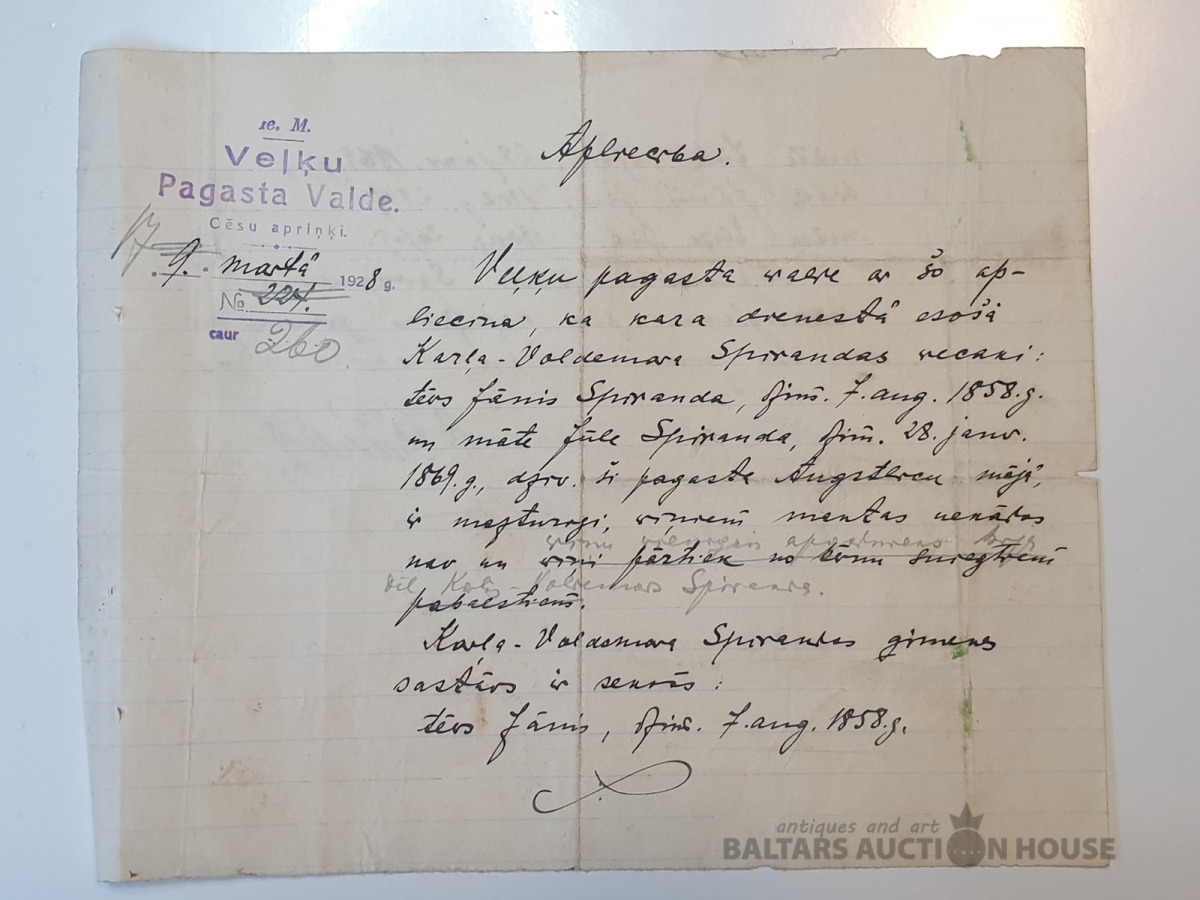 Ie. M.
Veļķu
Pagasta Valde.
Cēsu apriņķi.
17
9. martā 1928 g.
No 224.
caur 260
Apliecība.
Veļķu pagasta walde ar šo ap-
liecina, ka kara dienestā esošā
Karļa-Voldemara Spirandas vecaki:
tēvs Jānis Spiranda, dzim. 7. aug. 1858.g.
un māte Jūle Spiranda, dzim. 28. janv.
1869.g., dzīv. šī pagasta mājā,
ir mazturīgi, viņiem mantas nekādas
viņu vienīgais apgādnieks bija
nav un viņi pārtiek no bērnu sniegtiem
dēl Voldemars Spiranda.
pabalstiem.
Karļa-Voldemara Spirandas ģimenes
sastāvs ir sekošs:
tēvs Jānis, dzim. 7. aug. 1858.g.
antiques and art
BALTARS AUCTION HOUSE